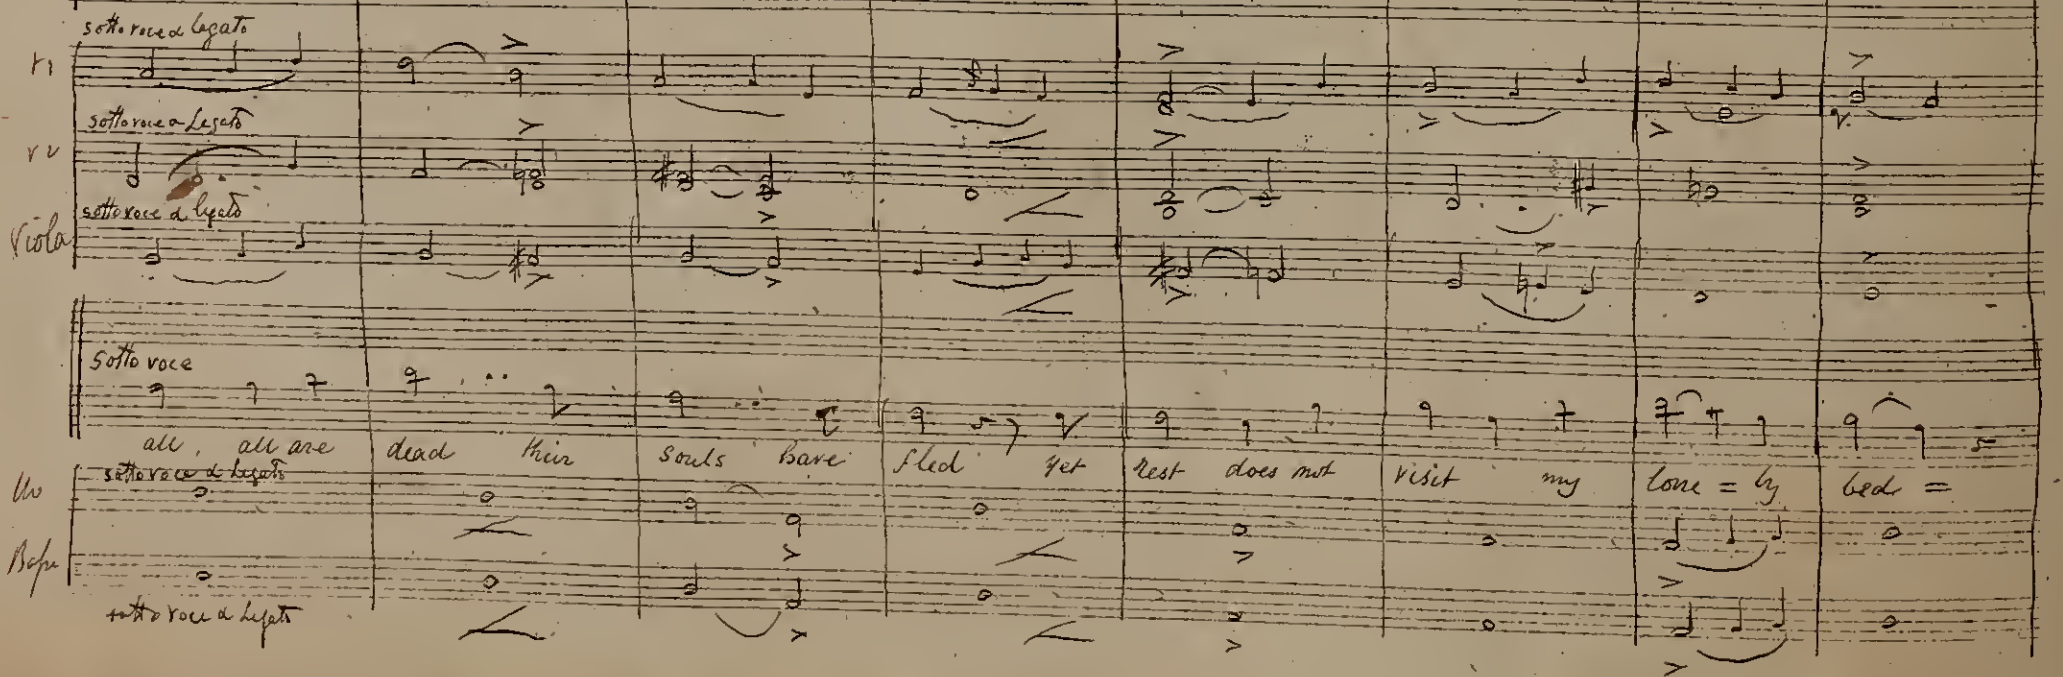 sotto voce & legato
V1
sotto voce & Legato
V2
sotto voce & legato
Viola
sotto voce
all, all are dead their souls have fled yet rest does not visit my lone = ly bed =
sotto voce & Legato
sotto voce & Legato